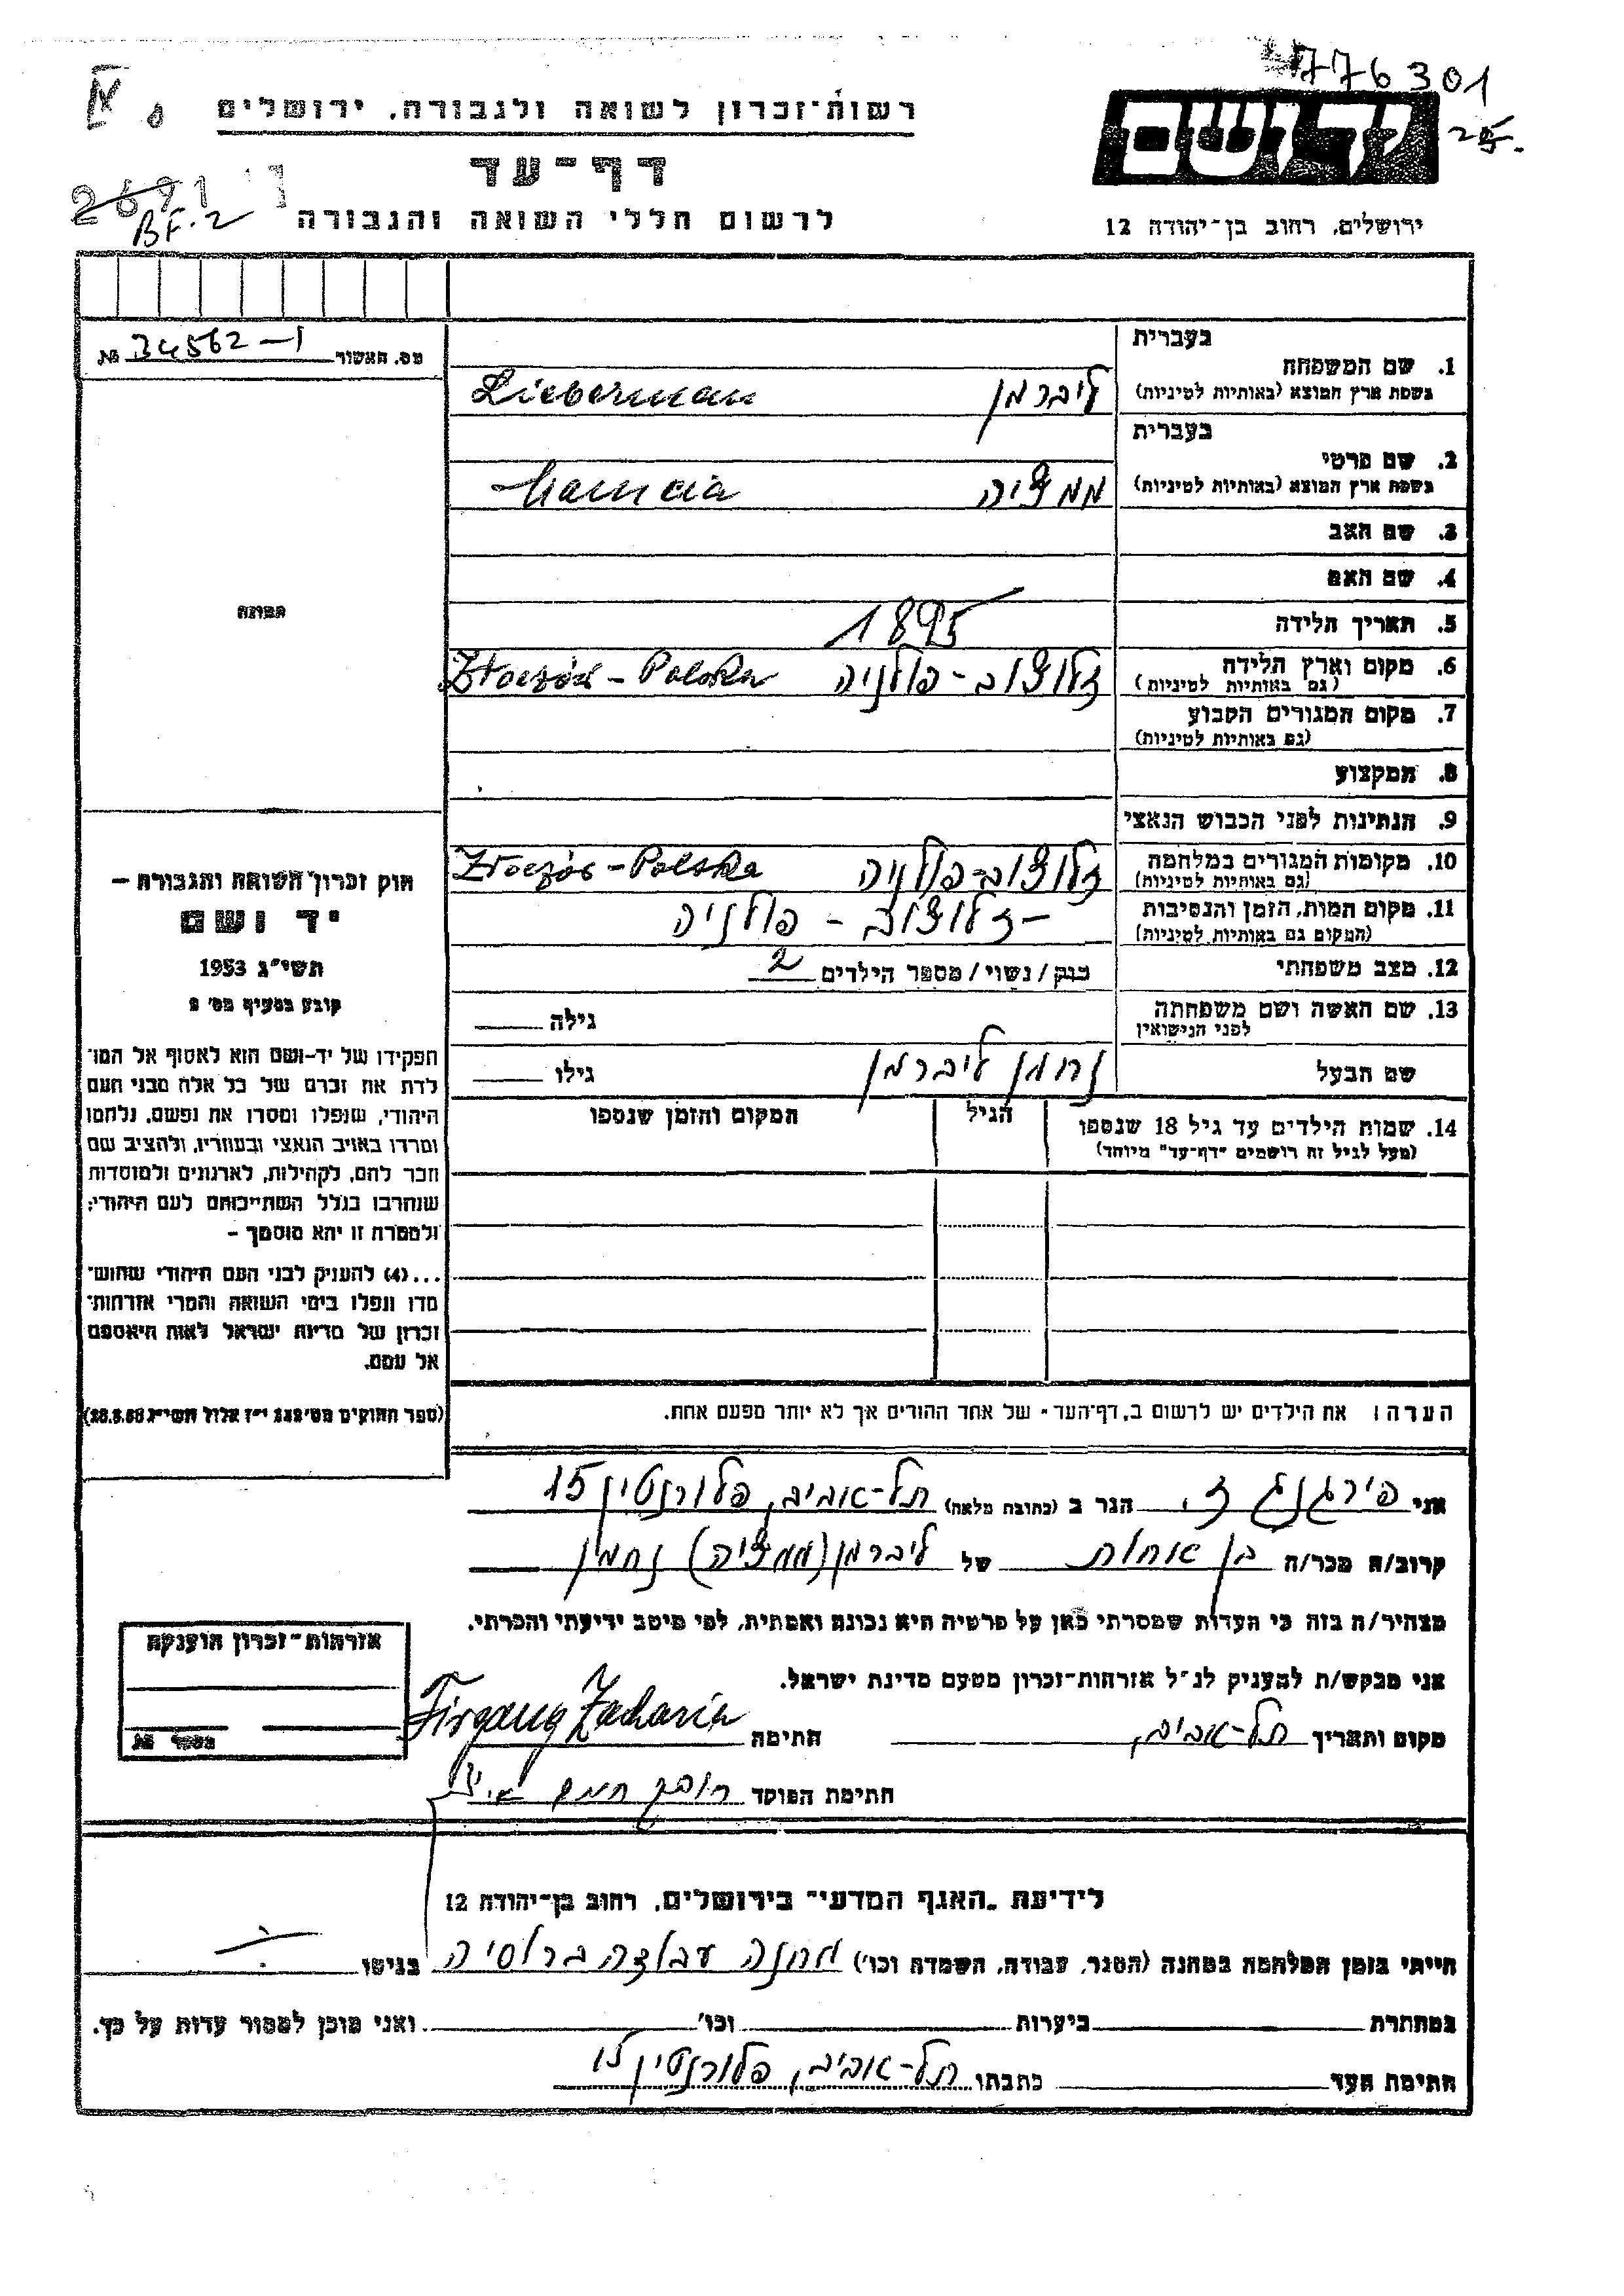 776301
25.
רשות־זכרון לשואה ולגבורה, ירושלים
יד ושם
דף־עד
לרשום חללי השואה והגבורה
2691
BF.2
ירושלים, רחוב בן־יהודה 12
מס. האשור 34562-1 №
בעברית
1. שם המשפחה
בשפת ארץ המוצא (באותיות לטיניות)
ליברמן Lieberman
בעברית
2. שם פרטי
בשפת ארץ המוצא (באותיות לטיניות)
ממציה Mamcia
3. שם האב
4. שם האם
5. תאריך הלידה 1895
6. מקום וארץ הלידה
(גם באותיות לטיניות)
זלוצוב-פולניה Złoczów-Polska
7. מקום המגורים הקבוע
(גם באותיות לטיניות)
8. המקצוע
9. הנתינות לפני הכבוש הנאצי
10. מקומות המגורים במלחמה
(גם באותיות לטיניות)
זלוצוב-פולניה Złoczów-Polska
11. מקום המות, הזמן והנסיבות
(המקום גם באותיות לטיניות)
זלוצוב - פולניה
12. מצב משפחתי רווק / נשוי / מספר הילדים 2
13. שם האשה ושם משפחתה
לפני הנישואין
גילה
שם הבעל נחמן ליברמן גילו
14. שמות הילדים עד גיל 18 שנספו
(מעל לגיל זה רושמים "דף־עד" מיוחד)
הגיל
המקום והזמן שנספו
תמונה
חוק זכרון השואה והגבורה –
יד ושם
תשי"ג 1953
קובע בסעיף מס' 2
תפקידו של יד-ושם הוא לאסוף אל המו־
לדת את זכרם של כל אלה מבני העם
היהודי, שנפלו ומסרו את נפשם, נלחמו
ומרדו באויב הנאצי ובעוזריו, ולהציב שם
וזכר להם, לקהילות, לארגונים ולמוסדות
שנחרבו בגלל השתייכותם לעם היהודי;
ולמטרה זו יהא מוסמך –
...(4) להעניק לבני העם היהודי שהוש־
מדו ונפלו בימי השואה והמרי אזרחות־
זכרון של מדינת ישראל לאות היאספם
אל עמם.
הערה: את הילדים יש לרשום ב"דף־העד" של אחד ההורים אך לא יותר מפעם אחת.
אני פירגנג ז. הגר ב (כתובת מלאה) תל-אביב, פלורנטין 15
קרוב/ה מכר/ה בן אחות של ליברמן (ממציה) נחמן
מצהיר/ה בזה כי העדות שמסרתי כאן על פרטיה היא נכונה ואמתית, לפי מיטב ידיעתי והכרתי.
אני מבקש/ת להעניק לנ"ל אזרחות־זכרון מטעם מדינת ישראל.
מקום ותאריך תל-אביב, חתימה Firgang Zacharia
חתימת הפוקד
אזרחות־זכרון הוענקה
מספר №
לידיעת "האגף המדעי" בירושלים, רחוב בן־יהודה 12
הייתי בזמן המלחמה במחנה (הסגר, עבודה, השמדה וכו') מחנה עבודה ברוסיה בגיטו
במחתרת ביערות וכו' ואני מוכן למסור עדות על כך.
חתימת העד כתבתו תל-אביב, פלורנטין 15